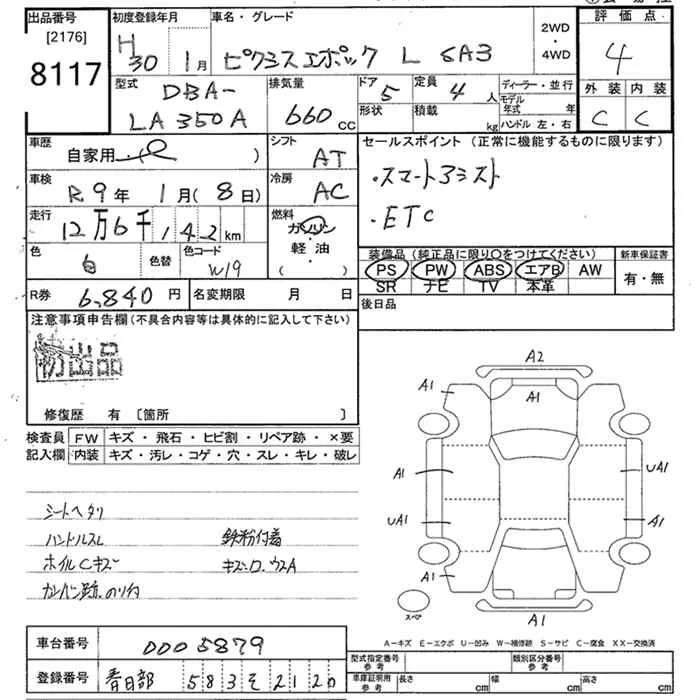 出品番号
[2176]
8117
初度登録年月
H30 1月
車名・グレード
ピクシスエポック L SA3
2WD
・
4WD
評価点
4
外装 内装
C C
型式
DBA-
LA350A
排気量
660 CC
ドア 5
形状
定員 4 人
積載 kg
ディーラー・並行
モデル年式 年
ハンドル 左・右
車歴
自家用 )
シフト
AT
車検
R9年 1月(8日)
冷房
AC
走行
12万6千142 km
燃料
ガソリン
軽・油
( )
色
白
色替
色コード
W19
セールスポイント (正常に機能するものに限ります)
・スマートアシスト
・ETC
装備品 (純正品に限り○をつけてください)
PS PW ABS エアB AW
SR ナビ TV 本革
新車保証書
有・無
R券 6,840 円
名変期限 月 日
後日品
注意事項申告欄(不具合内容等は具体的に記入して下さい)
初出品
修復歴 有 [箇所 ]
検査員 FW キズ・飛石・ヒビ割・リペア跡・×要
記入欄 内装 キズ・汚レ・コゲ・穴・スレ・キレ・破レ
シートヘタリ
ハンドルスレ 鉄粉付着
ホイルCキズ
カンバン跡.のり付
A2
A1
A1
A1
A1
UA1
UA1
A1
A1
A1
スペア
A1
A-キズ E-エクボ U-凹み W-補修跡 S-サビ C-腐食 XX-交換済
車台番号 0005879
登録番号 春日部 583 そ 2120
型式指定番号
参考
類別区分番号
参考
車庫証明用
参考
長さ cm 幅 cm 高さ cm